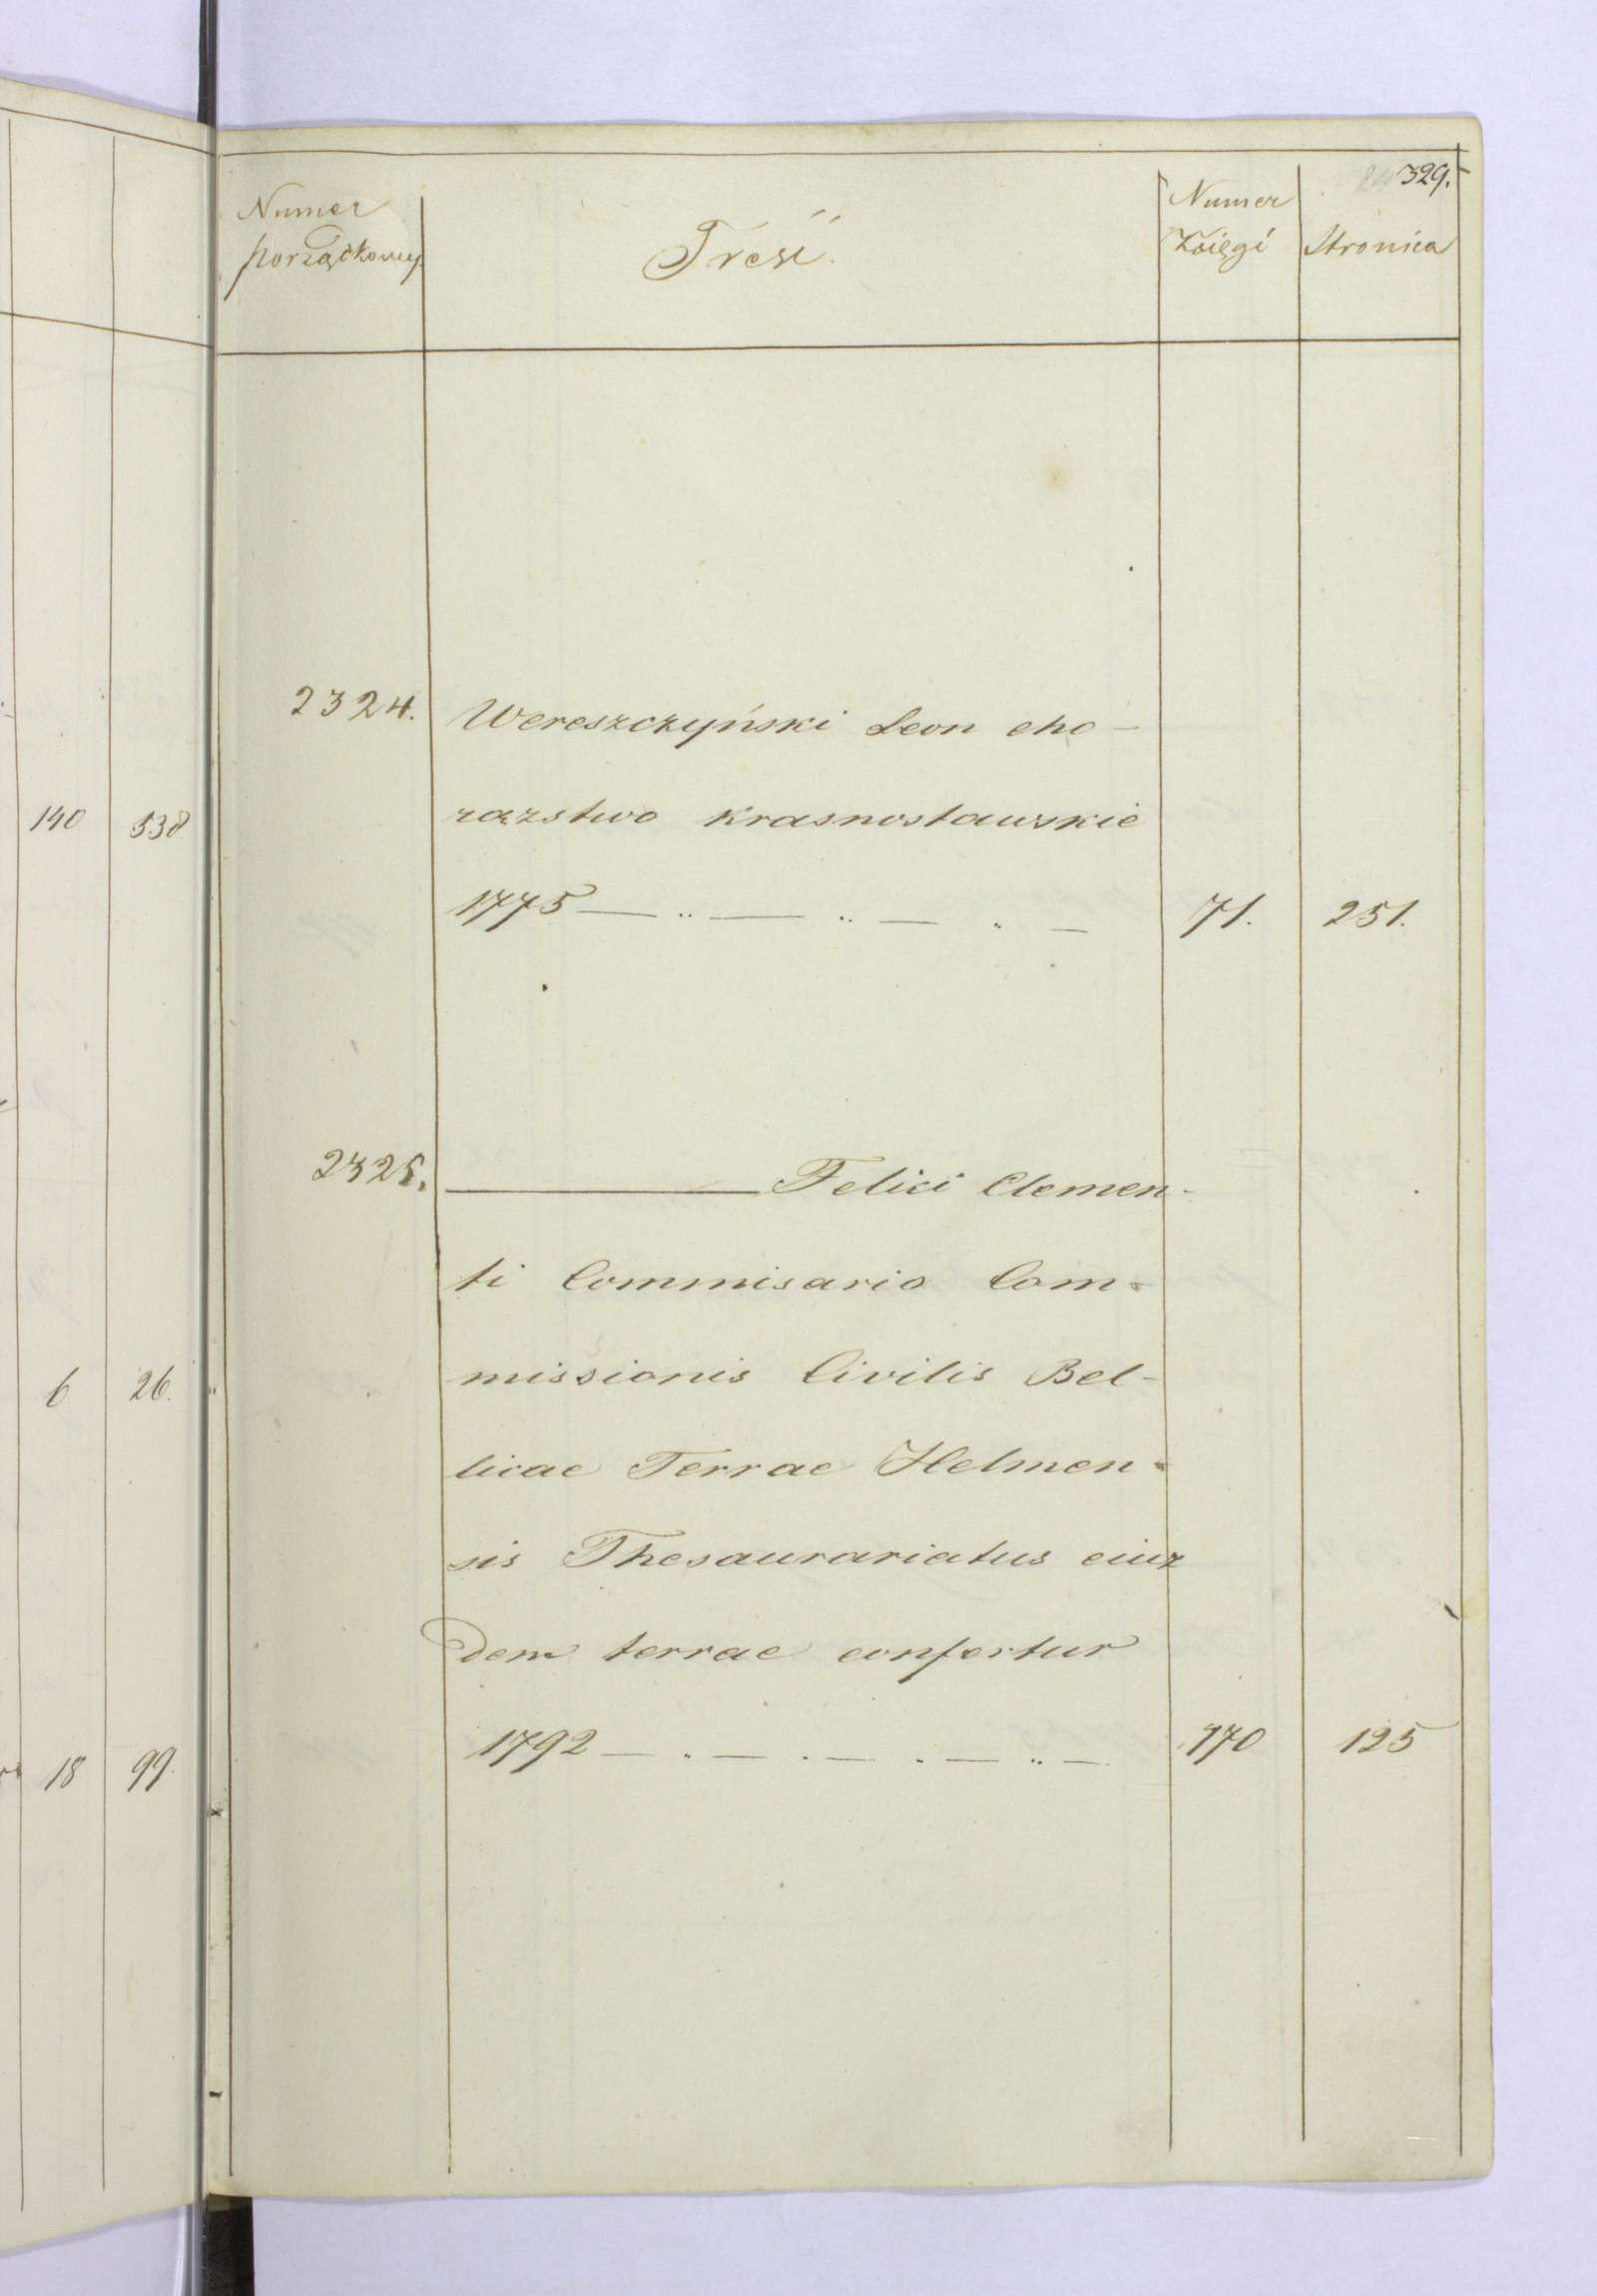 329.
Numer porządkowy. Treść. Numer Księgi Stronica
2324. Wereszczyński Leon cho-
rązstwo krasnostawskie
1775 — .. — .. — .. — 71. 251.
2325. ——— Felici Clemen-
ti Commisario Com-
missionis Civilis Bel-
licae Terrae Helmen-
sis Thesaurariatus eius
dem terrae confertur
1792 — . — . — . — .. — 170 125
140 538
6 26.
18 99.